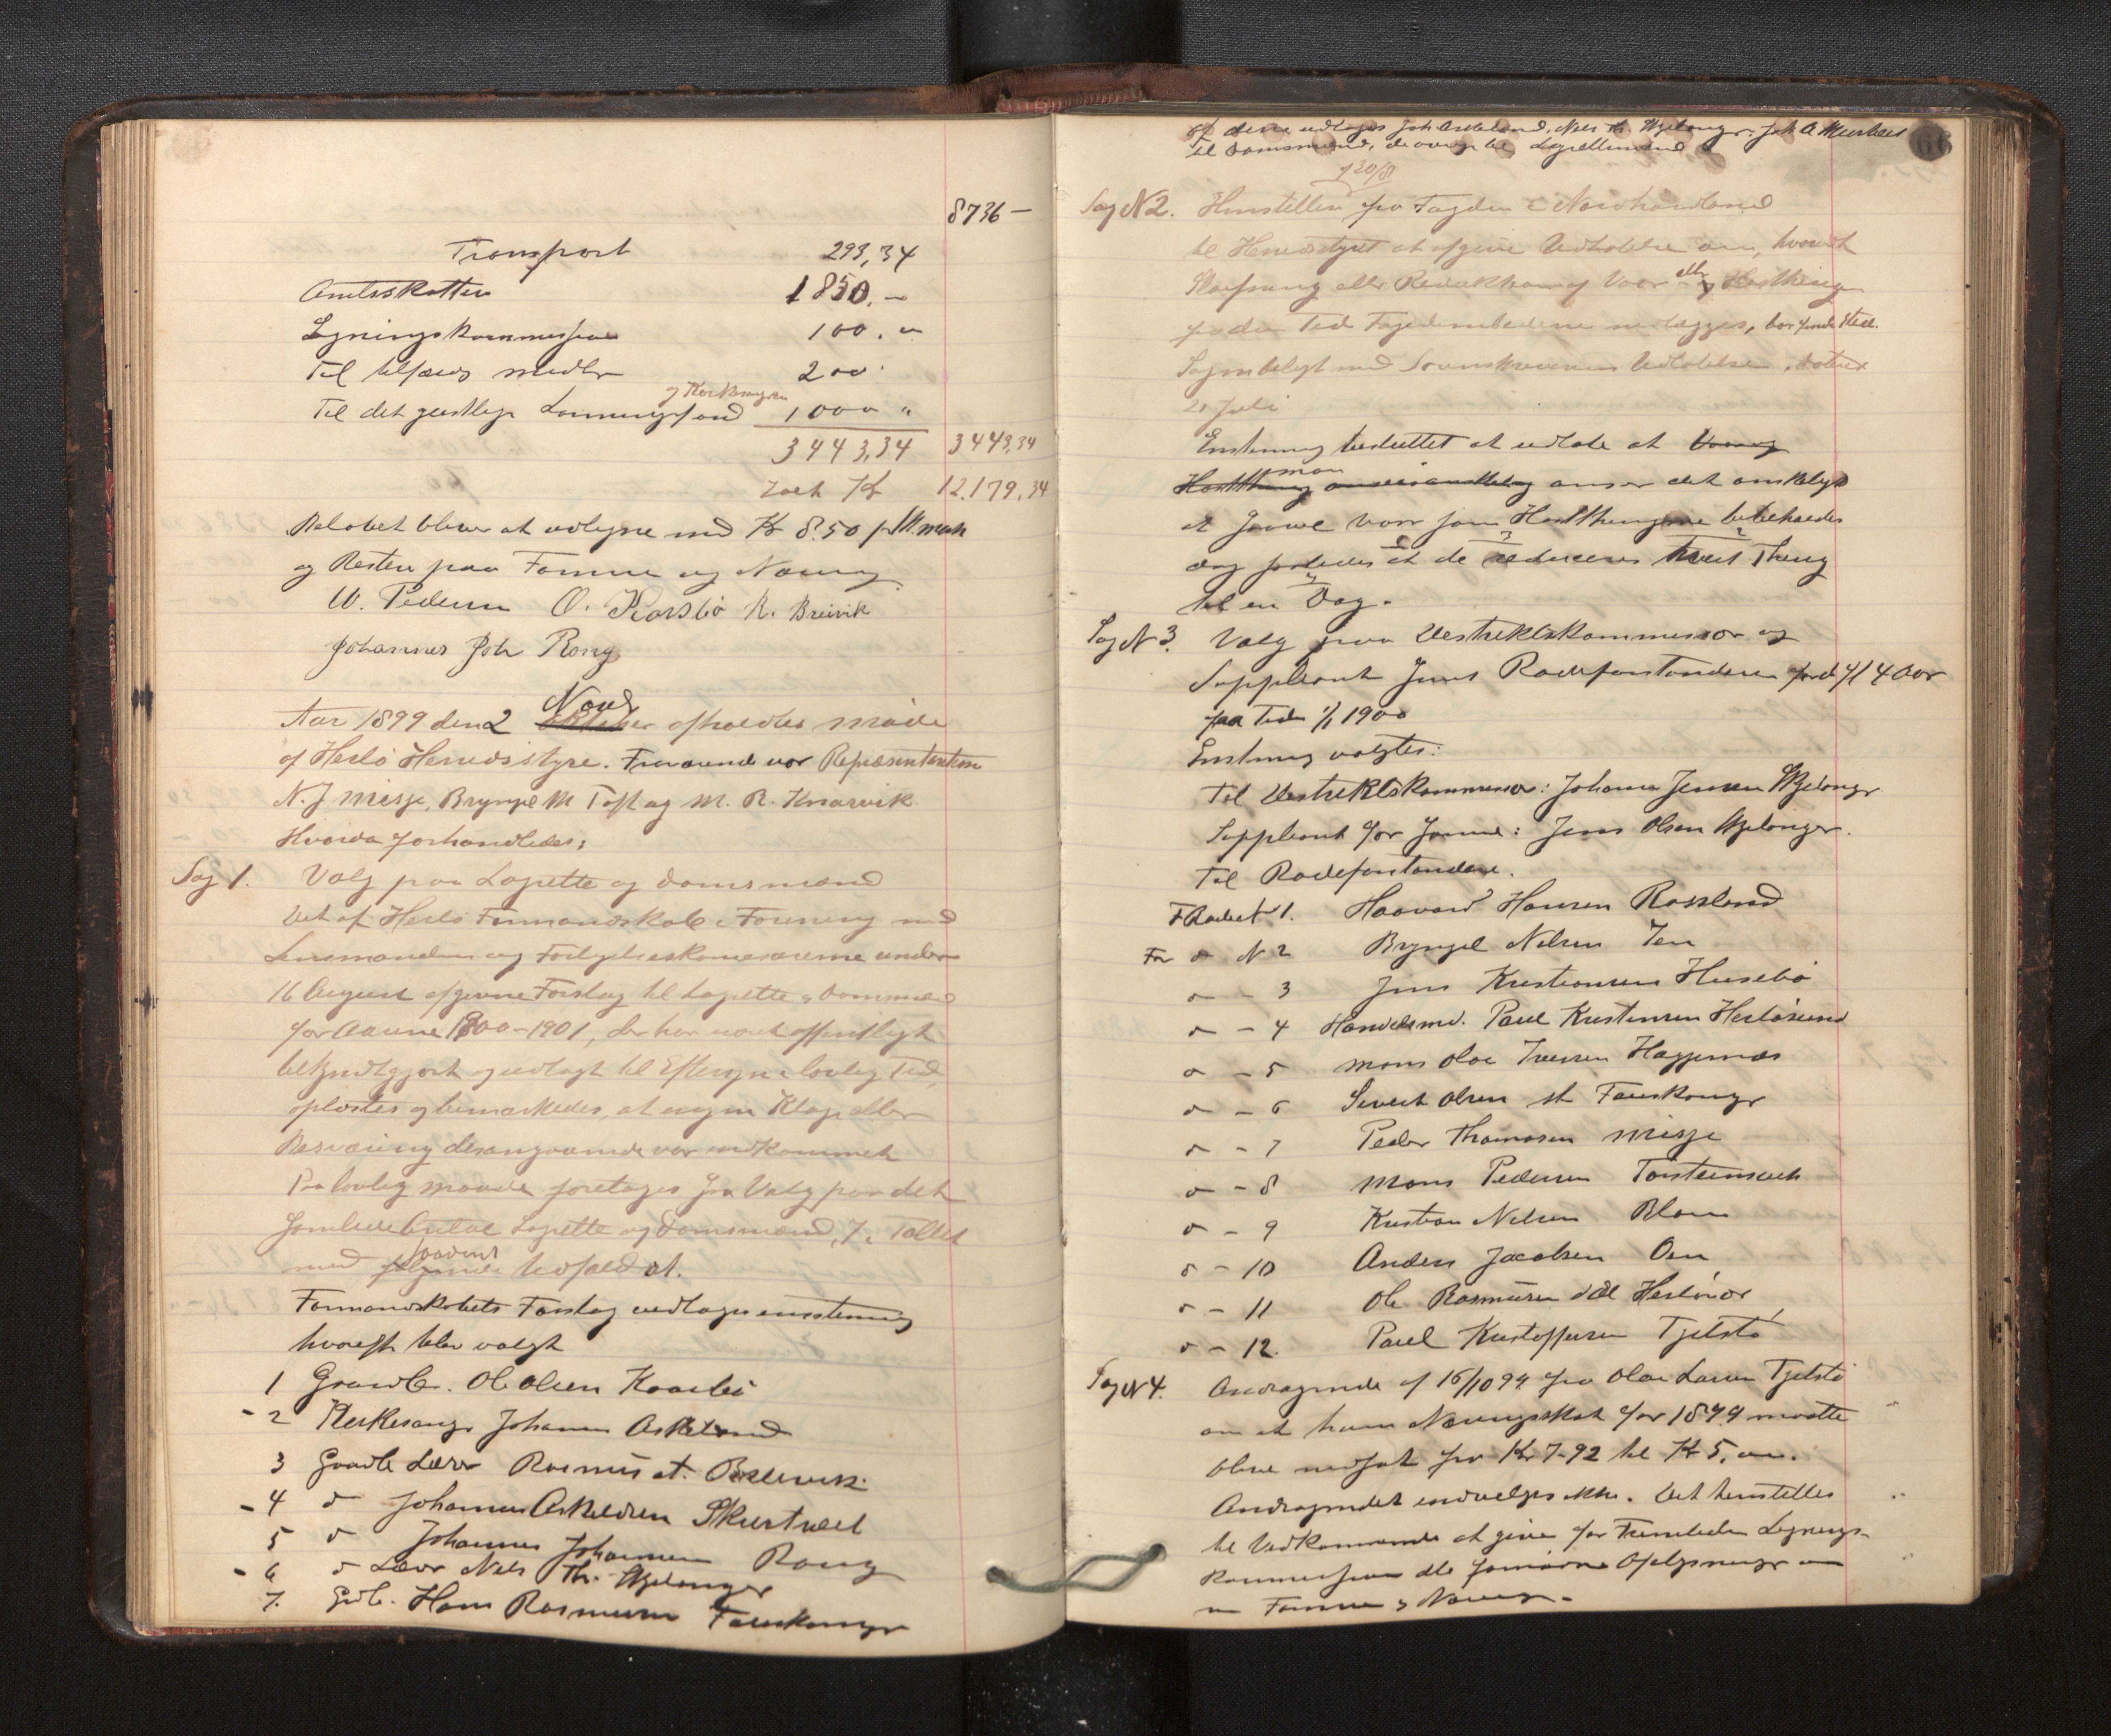 8736 —
Transport 293,34
Amtsskatten 1850. —
Ligningskommissionen 100. "
Til tilfælds midler 200
og Kirkesangeren
Til det geistlige Lønningsfond 1000 "
3443,34 3443,34
Kr 12.179,34
Beløbet bliver at udligne med Kr 8.50 pr Sk.mark
og Resten paa Formue og Næring
W. Pedersen O. Kårsbø R. Breivik
Johannes Joh Rong
Aar 1899 den 2 Novbr afholdtes møde
af Herlø Herredsstyre. Fraværende var Repræsentanterne
N. J Misje, Bryngel M Toft og M. R. Knarvik
Hvorda forhandledes;
Sag 1. Valg paa Lagrette og Domsmænd
Det af Herlø Formandskab i Forening med
Lensmanden og Forligelseskomisærerne under
16 August afgivne Forslag til Lagrette og Domsmænd
for Aarene 1900–1901, der har været offentligt
bekjendtgjort og udlagt til Eftersyn i lovlig Tid,
oplæstes og bemærkedes, at ingen Klage eller
Besværing desangaaende var indkommet
Paa lovlig maade foretoges saa Valg paa det
samlede Antal Lagrette og Domsmænd, 7 i Tallet
med saadant udfald at.
Formandskabets Forslag vedtoges enstemmig
hvorefter blev valgt
1 Gaardbr. Ole Olsen Kaarbø
- 2 Kirkesanger Johannes Askeland
3 Gaardb Lærer Rasmus A. Breivik
- 4 d Johannes Askeldsen Skurtveit
5 d Johannes Johannesen Rong
- 6 d Lærer Nels Th. Hjelanger
7. Grdb. Hans Rasmussen Fauskanger
66
Af disse udtoges Joh Askeland, Nels Th Hjelanger, Joh A Skurtveit
til Domsmænd, de øvrige til Lagrettemænd
f 30/8
Sag N 2. Henstillen fra Fogden i Nordhordland
til Herredsstyret at afgive Udtalelse om, hvorvidt
Sløifning eller Reduktion af Vaar eller og Høstthing
paa den Tid Fogedembederne nedlægges, bør finde Sted.
Sagen belyst med Sorenskriverens Udtalelse, dateret
20 Juli
Enstemmig besluttet at udtale at Vaar og
man
Høstthing anser det ønskeligt
at saavel Vaar som Høstthingene bibeholdes
dog saaledes at de reduceres hvert Thing
til en Dag.
Sag N 3. Valg paa Distriktskommissær og
Suppleant samt Rodeforstandere for 4 Aar
fra Tiden 1/1 1900
Enstemmig valgtes:
Til Distriktskommissær: Johannes Jensen Hjelanger
Suppleant for samme: Jens Olsen Hjelanger.
Til Rodeforstandere.
F Rodet N 1. Haavard Hansen Rossland
For d N 2 Bryngel Nelsen Ien
d – 3 Jens Kristiansen Husebø
d – 4 Handelsmd. Paul Kristensen Herløsund
d – 5 Mons Olai Iversen Hagenæs
d – 6 Sivert Olsen st Fauskanger
d – 7 Peder Thomasen Misje
d – 8 Mons Pedersen Torsteinsvik
d – 9 Kristian Nelsen Blom
d – 10 Anders Jacobsen Oen
d – 11 Ole Rasmusen Herløvær
d – 12. Paul Kristoffersen Tjelstø
Sag N 4. Andragende af 16/10 99 fra Olai Larsen Tjelstø
om at hans Næringsskat for 1899 maatte
blive nedsat fra Kr 7-92 til Kr 5, "
Andragendet indvilges ikke. Det henstilles
til Vedkommende at give for Fremtiden Lignings-
kommissionen de fornødne Oplysninger om
Formue og Næring –